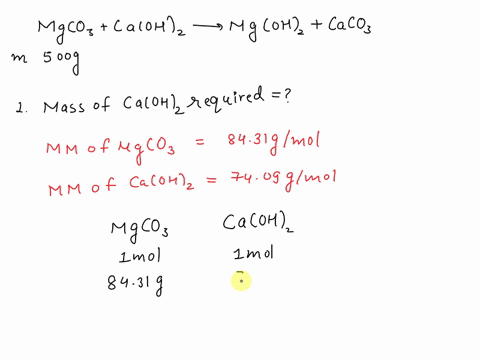 MgCO₃ + Ca(OH)₂ → Mg(OH)₂ + CaCO₃
m 500g
1. Mass of Ca(OH)₂ required = ?
MM of MgCO₃ = 84.31 g/mol
MM of Ca(OH)₂ = 74.09 g/mol
MgCO₃ Ca(OH)₂
1mol 1mol
84.31 g